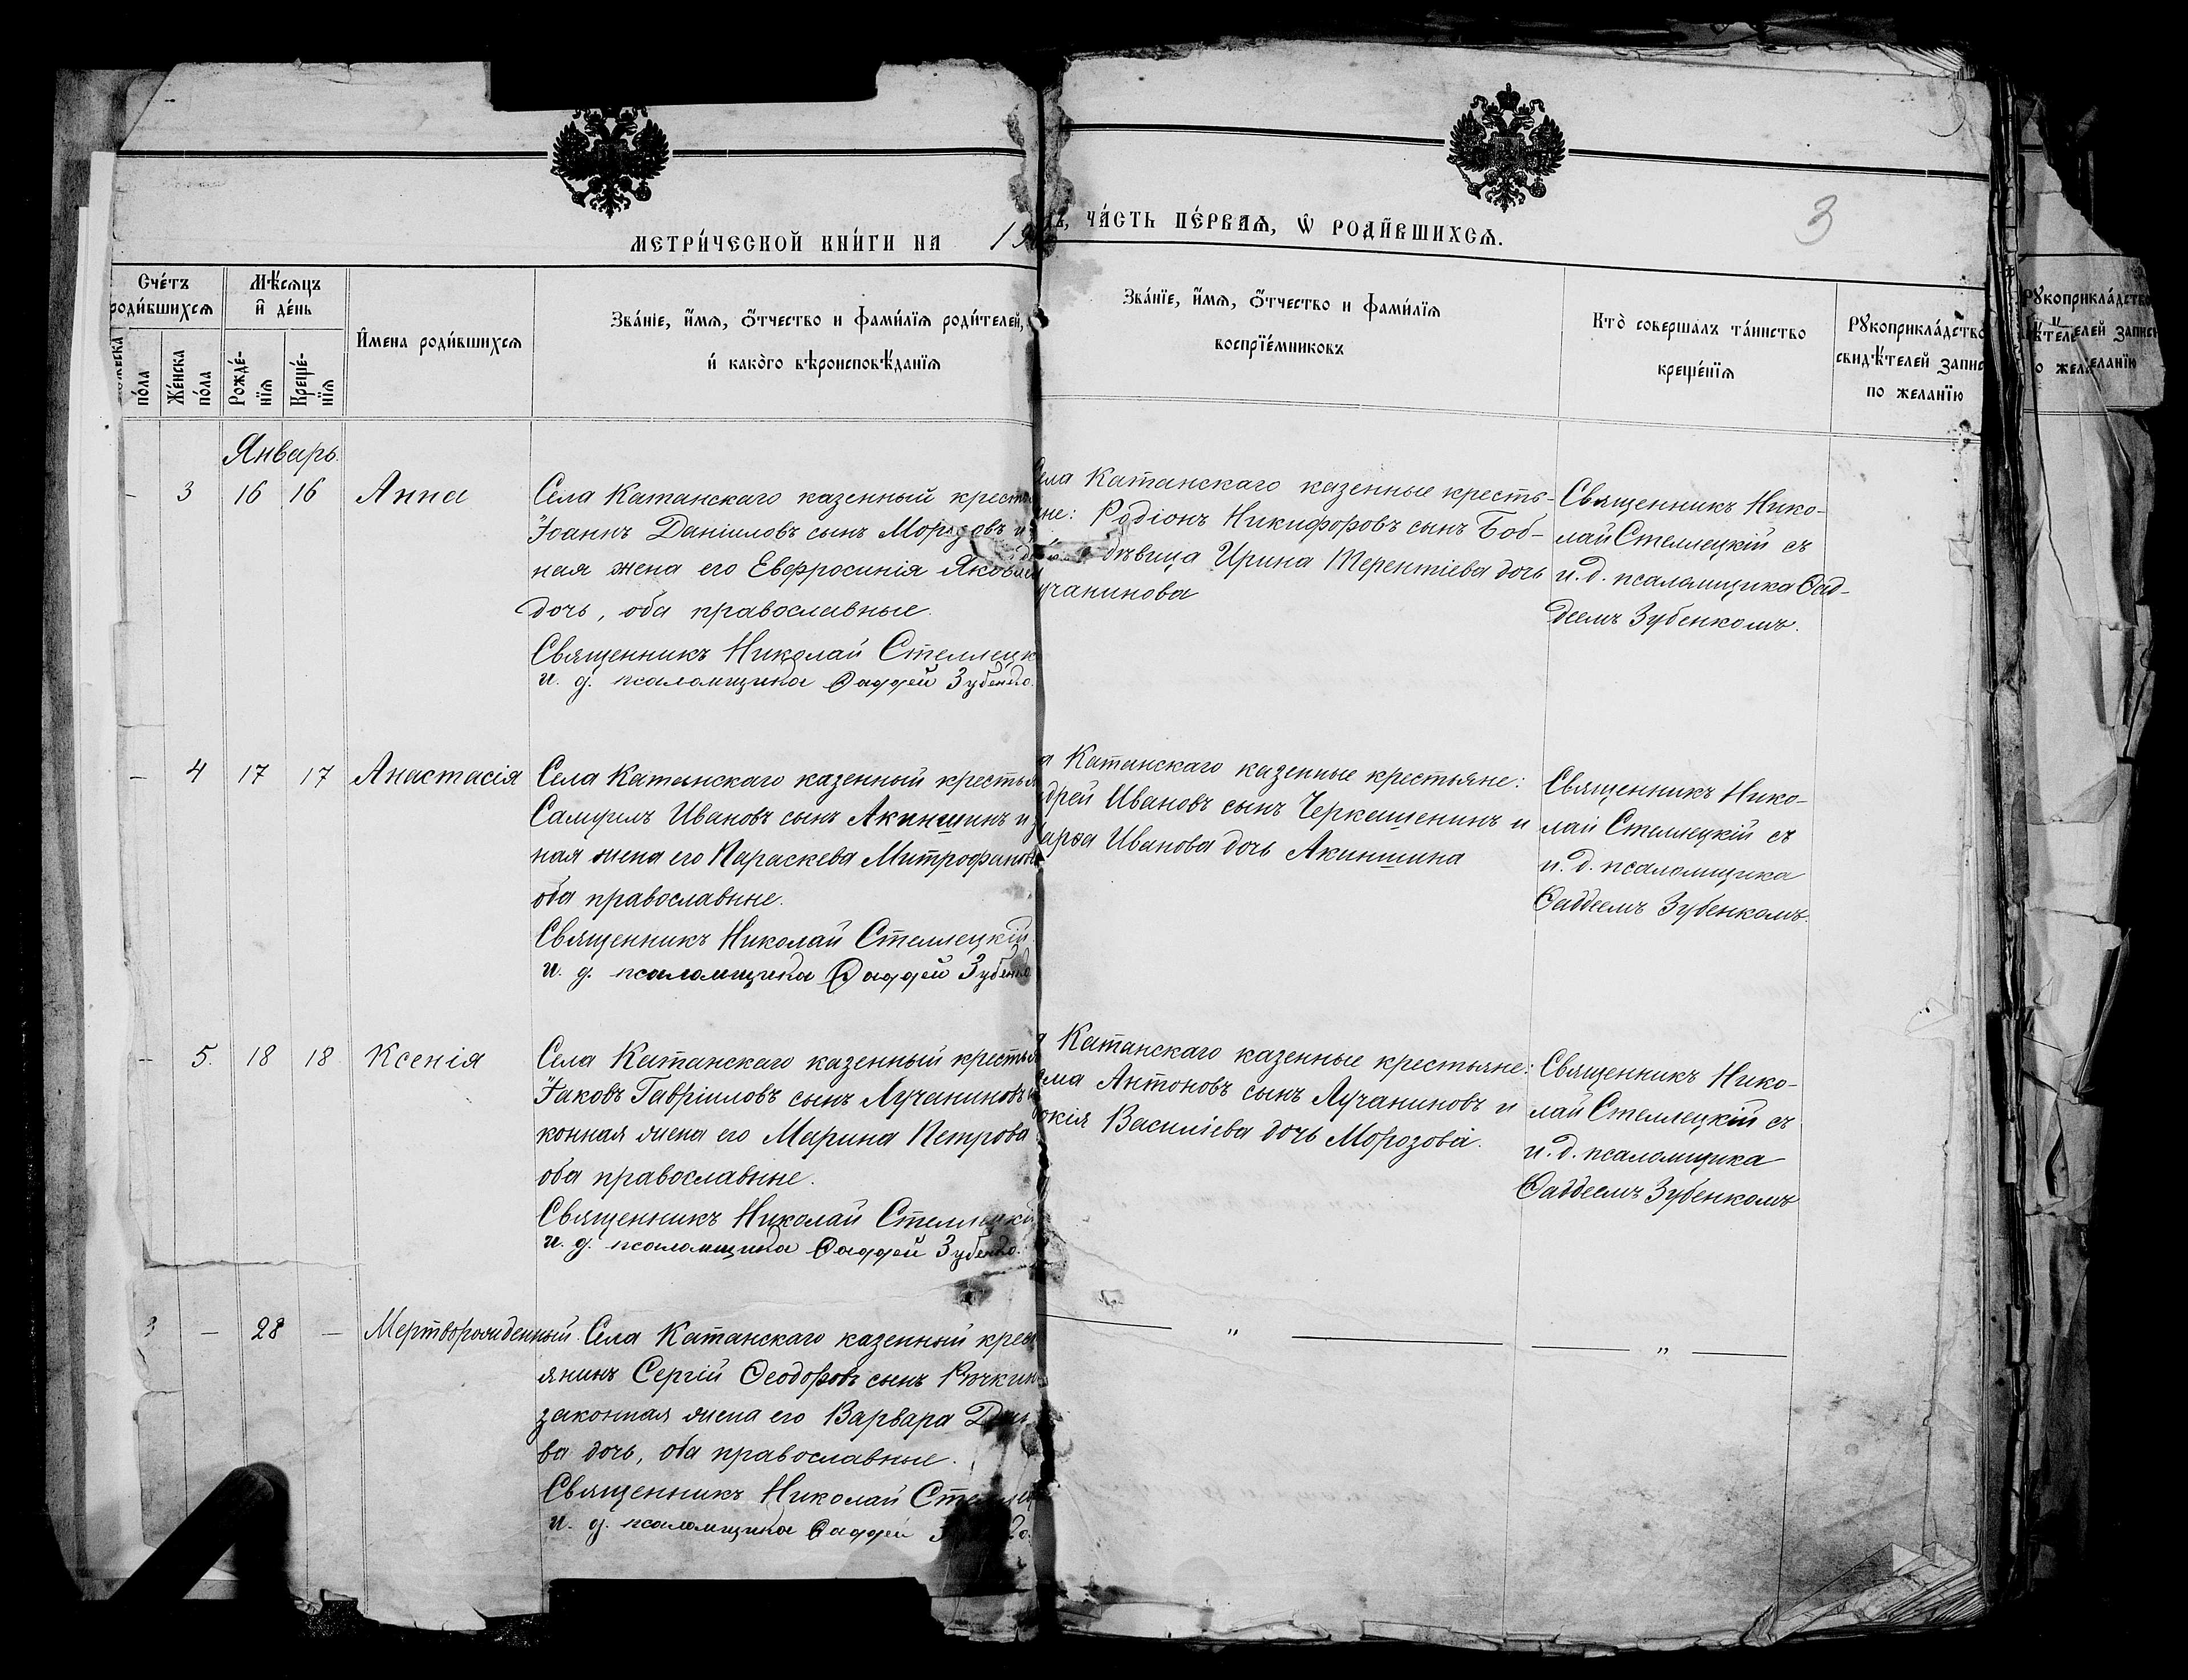 МЕТРИ́ЧЕСКОЙ КНИ́ГИ НА 19
ЧА́СТЬ ПЕ́РВАѦ, Ѡ РОДИ́ВШИХСѦ.
3
Сче́тъ
роди́вшихсѧ
Мѣ́сѧцъ
и де́нь
И́мена роди́вшихсѧ
Зва́нїе, и́мѧ, о́тчество и фами́лїѧ роди́телей,
и како́гѡ вѣроисповѣ́данїѧ
по́ла
Же́нска
по́ла
Рожде́-
нїѧ
Креще́-
нїѧ
Зва́нїе, и́мѧ, о́тчество и фами́лїѧ
воспрїе́мниковъ
Кто̀ соверша́лъ та́инство
креще́нїѧ
Рꙋкоприкла́дство
свидѣ́телей запис
по жела́нїю
Январь.
- 3 16 16 Анна
Села Катанскаго казенный крестья
Іоаннъ Даніиловъ сынъ Морозовъ и
ная жена его Евфросинія Яковле
дочь, оба православные.
Священникъ Николай Стеллецк
и. д. псаломщика Ѳаддей Зубенко.
Села Катанскаго казенные кресть-
не: Родіонъ Никифоровъ сынъ Боб-
дѣвица Ирина Терентіева дочь
учанинова
Священникъ Нико-
лай Стеллецкій съ
и. д. псаломщика Ѳад-
деемъ Зубенкомъ.
- 4 17 17 Анастасія
Села Катанскаго казенный крестья
Самуилъ Ивановъ сынъ Акиншинъ и з
ная жена его Параскева Митрофанов
оба православные.
Священникъ Николай Стеллецкій.
и. д. псаломщика Ѳаддей Зубенко
а Катанскаго казенные крестьяне:
дрей Ивановъ сынъ Черкашенинъ и
арѳа Иванова дочь Акиншина
Священникъ Нико-
лай Стеллецкій съ
и. д. псаломщика
Ѳаддеемъ Зубенкомъ.
- 5. 18 18 Ксенія
Села Катанскаго казенный крестья
Іаковъ Гавріиловъ сынъ Лучаниновъ и
конная жена его Марина Петрова
оба православные.
Священникъ Николай Стеллецкій
и. д. псаломщика Ѳаддей Зубенко.
а Катанскаго казенные крестьяне:
ома Антоновъ сынъ Лучаниновъ и
окія Василіева дочь Морозова.
Священникъ Нико-
лай Стеллецкій съ
и. д. псаломщика
Ѳаддеемъ Зубенкомъ
3 - 28 - Мертворожденный.
Села Катанскаго казенный крес
янинъ Сергій Ѳеодоровъ сынъ Рѣчкин
законная жена его Варвара
ва дочь, оба православные.
Священникъ Николай Стеллец
и. д. псаломщика Ѳаддей
„ „